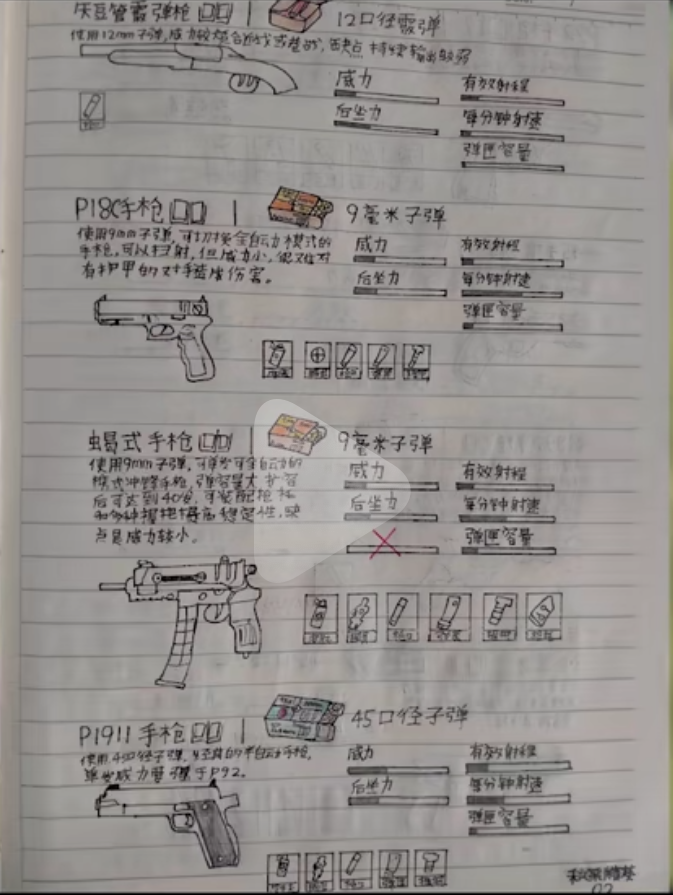 短管霰弹枪
12口径霰弹
使用12mm子弹,威力较大适合近战或巷战,缺点 持续输出较弱
威力
有效射程
后坐力
每分钟射速
弹匣容量
P18C手枪
9毫米子弹
使用9mm子弹,可切换全自动模式的
手枪,可以扫射,但威力小,很难对
有护甲的对手造成伤害。
威力
有效射程
后坐力
每分钟射速
弹匣容量
蝎式手枪
9毫米子弹
使用9mm子弹,可单发可全自动的
模式冲锋手枪,弹容量大 扩容
后可达到40发,可装配枪托
和多种握把提高稳定性,缺
点是威力较小。
威力
有效射程
后坐力
每分钟射速
弹匣容量
P1911手枪
45口径子弹
使用45口径子弹,的半自动手枪,
单发威力要强于P92。
威力
有效射程
后坐力
每分钟射速
弹匣容量
02